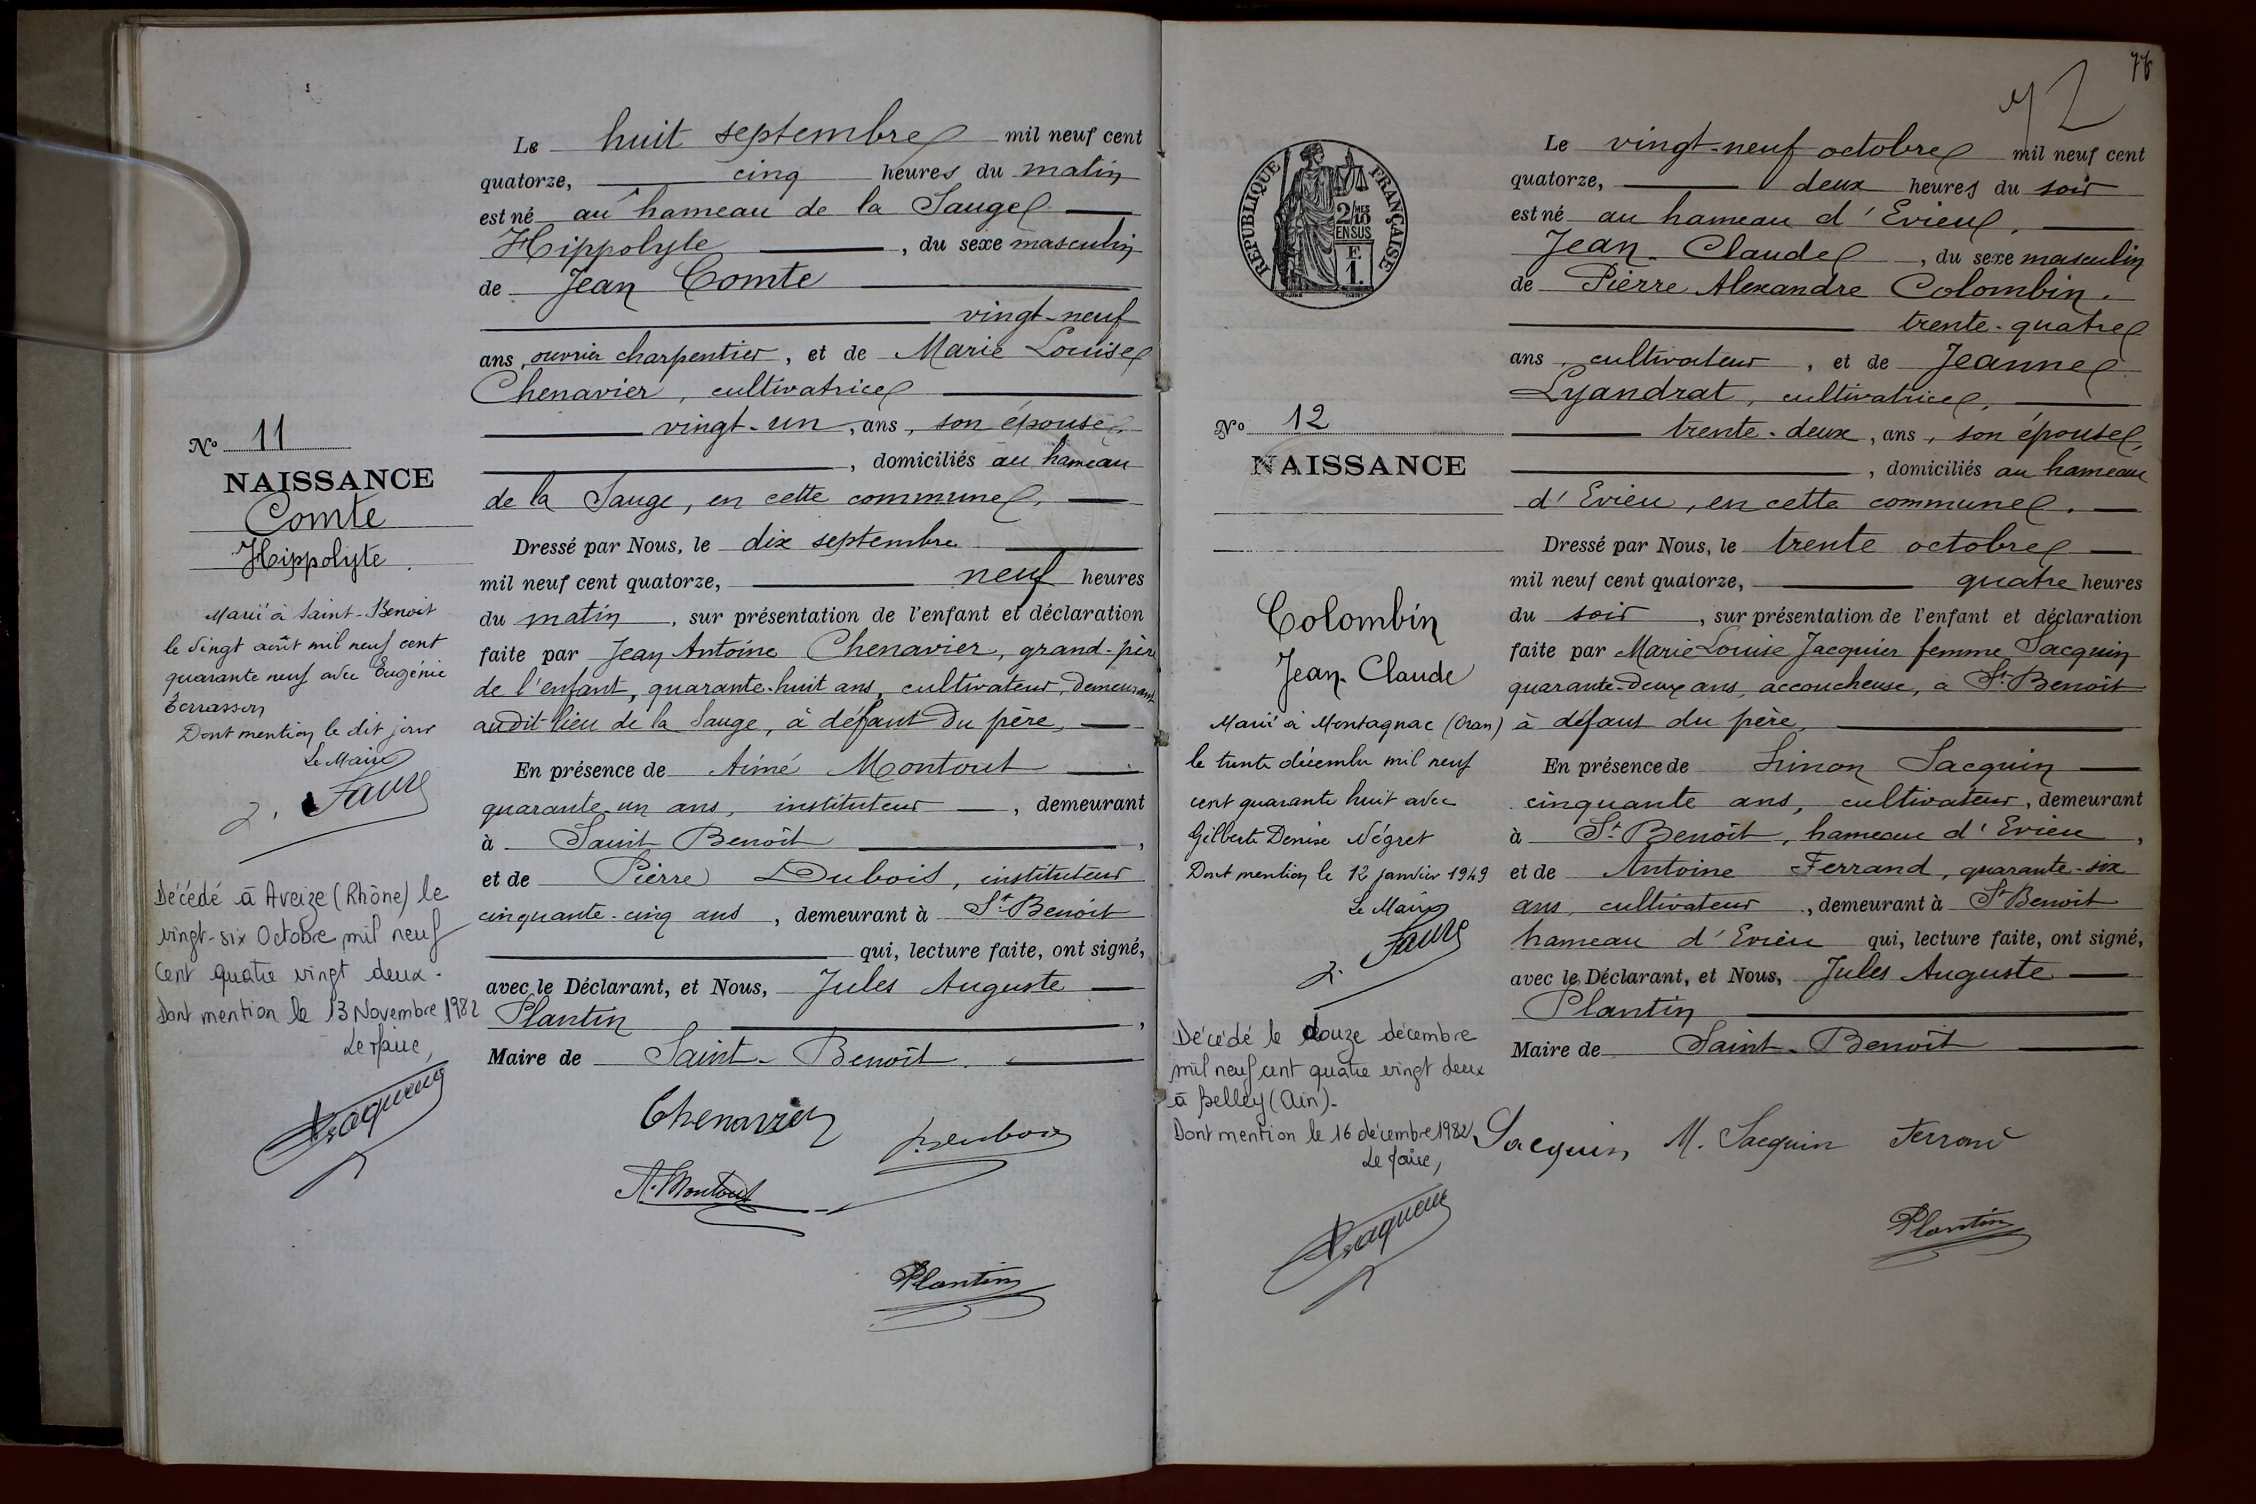 Le huit septembre mil neuf cent
quatorze, cinq heures du matin
est né au hameau de la Sauge
Hippolyte, du sexe masculin
de Jean Comte
vingt-neuf
ans, ouvrier charpentier, et de Marie Louise
Chenavier, cultivatrice
vingt-un, ans, son épouse,
, domiciliés au hameau
de la Sauge, en cette commune.
Dressé par Nous, le dix septembre
mil neuf cent quatorze, neuf heures
du matin, sur présentation de l'enfant et déclaration
faite par Jean Antoine Chenavier, grand-père
de l'enfant, quarante-huit ans, cultivateur, demeurant
audit lieu de la Sauge, à défaut du père,
En présence de Aimé Montout
quarante-un ans, instituteur, demeurant
à Saint Benoît,
et de Pierre Dubois, instituteur
cinquante-cinq ans, demeurant à St Benoît
qui, lecture faite, ont signé,
avec le Déclarant, et Nous, Jules Auguste
Plantin,
Maire de Saint-Benoît.
Chenavier
P. Dubois
A. Montout
Plantin
No 11
NAISSANCE
Comte
Hippolyte.
Marié à Saint-Benoit
le vingt août mil neuf cent
quarante neuf avec Eugénie
Terrasson
Dont mention le dit jour
Le Maire
J. Faure
Décédé à Aveize (Rhône) le
vingt-six Octobre mil neuf
cent quatre vingt deux.
Dont mention le 13 Novembre 1982
Le Maire,
76
12
RÉPUBLIQUE FRANÇAISE
2/10MES
EN SUS
E
1.
Le vingt-neuf octobre mil neuf cent
quatorze, deux heures du soir
est né au hameau d'Evieu,
Jean-Claude, du sexe masculin
de Pierre Alexandre Colombin.
trente-quatre
ans, cultivateur, et de Jeanne
Lyandrat, cultivatrice,
trente-deux, ans, son épouse,
, domiciliés au hameau
d'Evieu, en cette commune.
Dressé par Nous, le trente octobre
mil neuf cent quatorze, quatre heures
du soir, sur présentation de l'enfant et déclaration
faite par Marie Louise Jacquier femme Sacquin
quarante-deux ans, accoucheuse, à St Benoît
à défaut du père,
En présence de Simon Sacquin
cinquante ans, cultivateur, demeurant
à St Benoît, hameau d'Evieu,
et de Antoine Ferrand, quarante-six
ans, cultivateur, demeurant à St Benoit
hameau d'Evieu qui, lecture faite, ont signé,
avec le Déclarant, et Nous, Jules Auguste
Plantin
Maire de Saint-Benoît
Sacquin M. Sacquin Ferrand
Plantin
No 12
NAISSANCE
Colombin
Jean-Claude
Marié à Montagnac (Oran)
le trente décembre mil neuf
cent quarante huit avec
Gilberte Denise Négret
Dont mention le 12 janvier 1949
Le Maire
J. Faure
Décédé le douze décembre
mil neuf cent quatre vingt deux
à Belley (Ain).
Dont mention le 16 décembre 1982
Le Maire,